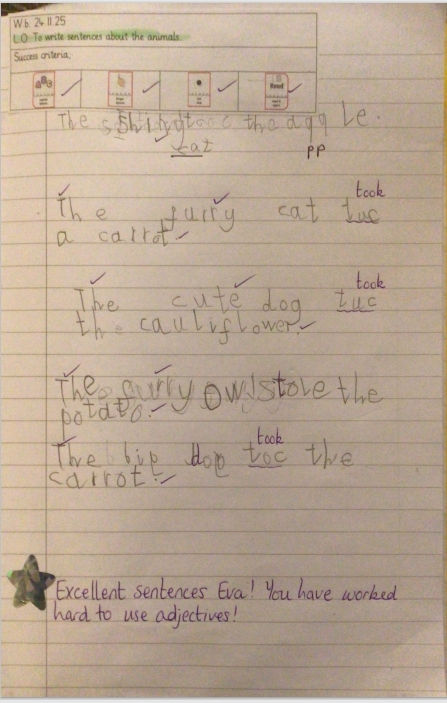 W.b. 24.11.25
L.O. To write sentences about the animals.
Success criteria:
Read
The shiny the
cat
pp
took
The furry cat tuc
a carrot
took
The cute dog tuc
the cauliflower.
The furry owl stole the
potato.
took
The big dog toc the
carrot.
Excellent sentences Eva! You have worked
hard to use adjectives!